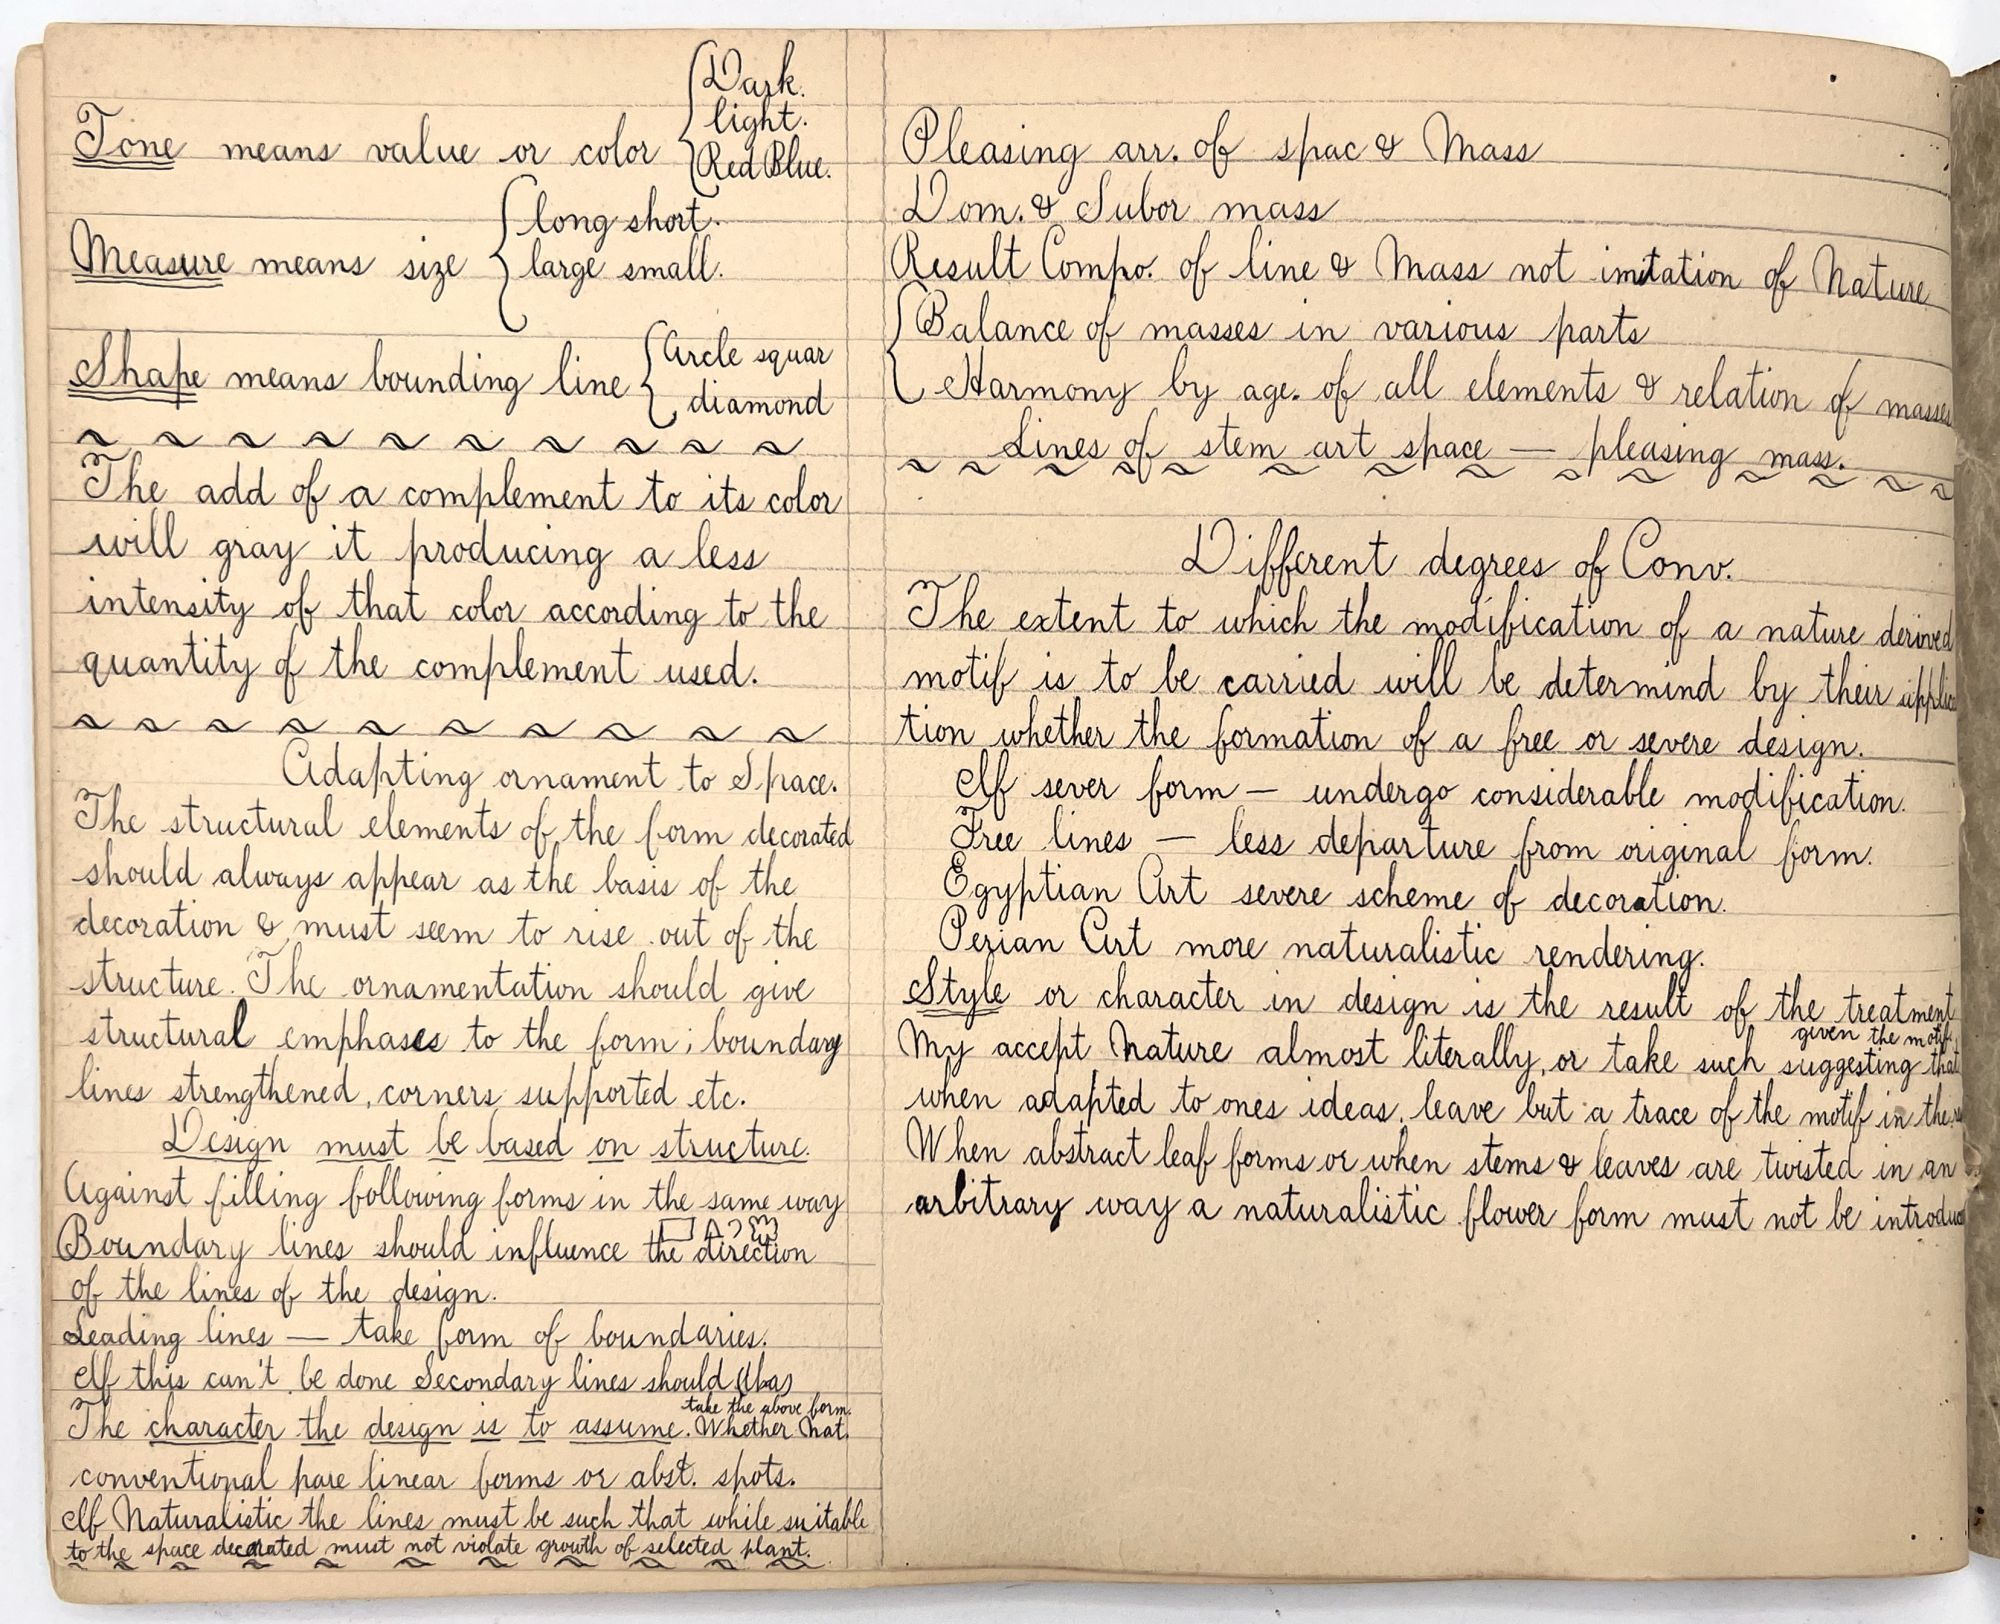 Dark.
light.
Tone means value or color Red Blue.
long short.
Measure means size large small.
Circle squar
Shape means bounding line diamond
The add of a complement to its color
will gray it producing a less
intensity of that color according to the
quantity of the complement used.
Adapting ornament to Space.
The structural elements of the form decorated
should always appear as the basis of the
decoration & must seem to rise out of the
structure. The ornamentation should give
structural emphases to the form; boundary
lines strengthened, corners supported etc.
Design must be based on structure.
Against filling following forms in the same way
Boundary lines should influence the direction
of the lines of the design.
Leading lines — take form of boundaries.
If this can't be done Secondary lines should
take the above form.
The character the design is to assume. Whether Nat.
conventional pare linear forms or abst. spots.
If Naturalistic the lines must be such that while suitable
to the space decorated must not violate growth of selected plant.
Pleasing arr. of spac & Mass
Dom. & Subor mass
Result Compo. of line & Mass not imitation of Nature
Balance of masses in various parts
Harmony by age. of all elements & relation of masses
Lines of stem art space — pleasing mass.
Different degrees of Conv.
The extent to which the modification of a nature derived
motif is to be carried will be determind by their applica
tion whether the formation of a free or severe design.
If sever form — undergo considerable modification.
Free lines — less departure from original form.
Egyptian Art severe scheme of decoration.
Perian Art more naturalistic rendering.
Style or character in design is the result of the treatment
given the motif.
My accept Nature almost literally, or take such suggesting that
when adapted to ones ideas, leave but a trace of the motif in the
When abstract leaf forms or when stems & leaves are twisted in an
arbitrary way a naturalistic flower form must not be introduc